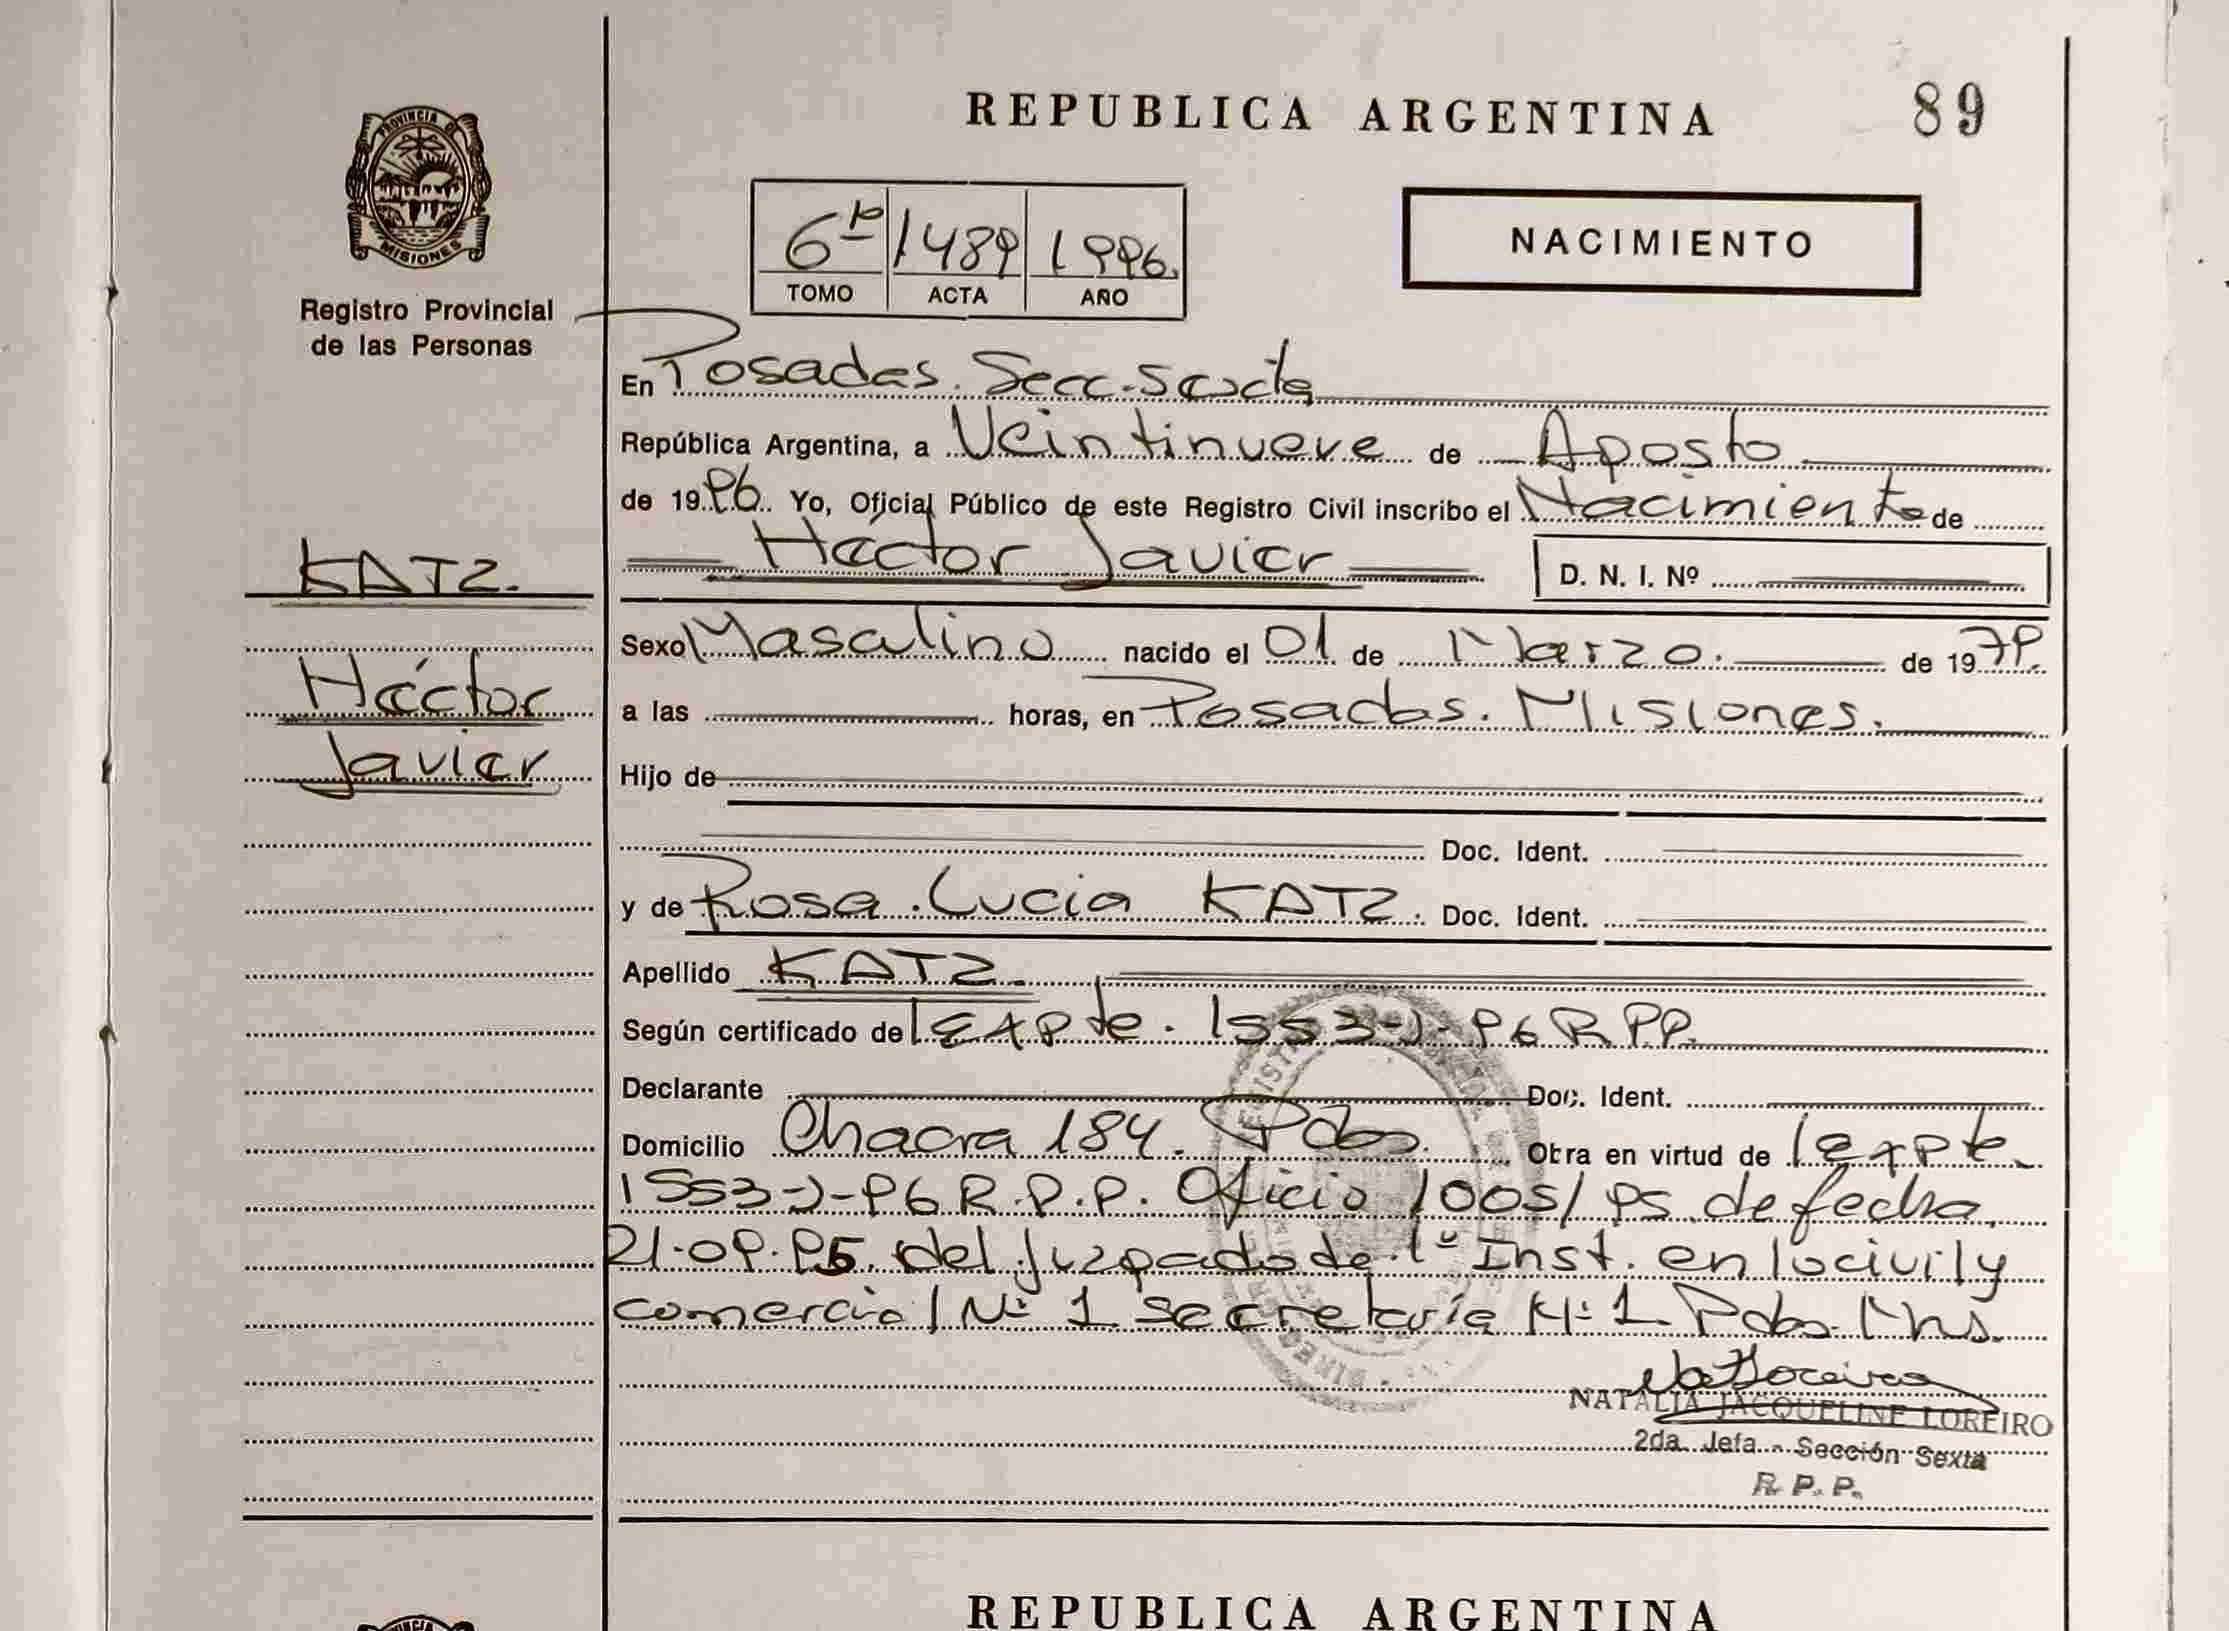 REPUBLICA ARGENTINA
89
PROVINCIA DE
MISIONES
Registro Provincial
de las Personas
6to 1489 1996.
TOMO ACTA AÑO
NACIMIENTO
En Posadas. Secc. Sexta
República Argentina, a Veintinueve de Agosto
de 1996. Yo, Oficial Público de este Registro Civil inscribo el Nacimiento de
Héctor Javier D. N. I. Nº
KATZ.
Héctor
Javier
Sexo Masculino nacido el 01 de Marzo. de 1979.
a las horas, en Posadas. Misiones.
Hijo de
Doc. Ident.
y de Rosa Lucia KATZ. Doc. Ident.
Apellido KATZ.
Según certificado de Expte. 1553-J-96 R.P.P.
Declarante Doc. Ident.
Domicilio Chacra 184. Pdas. Otra en virtud de Expte.
1553-J-96 R.P.P. Oficio 1005/95 de fecha
21.09.95. del Juzgado de 1º Inst. en lo civil y
comercial Nº 1 secretaría Nº 1 Pdas. Mns.
NATALIA JACQUELINE LOREIRO
2da. Jefa - Sección Sexta
R. P. P.
REPUBLICA ARGENTINA